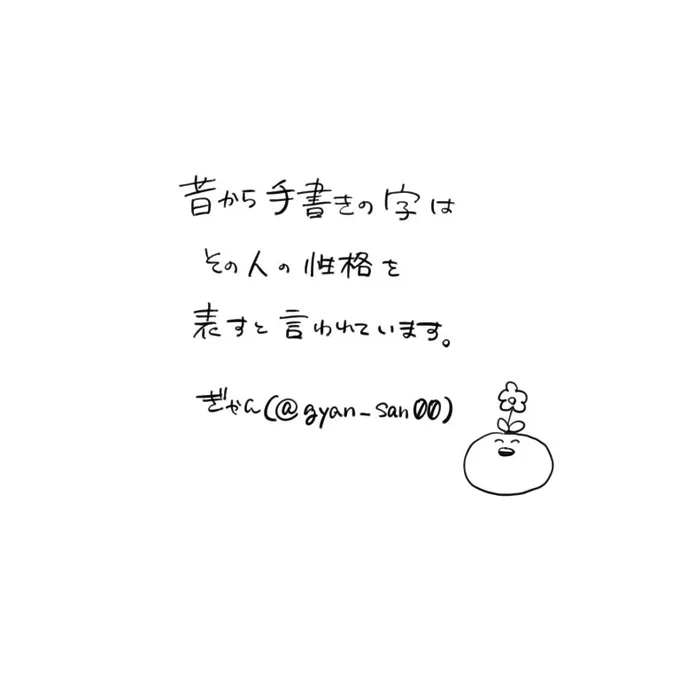 昔から手書きの字は
その人の性格を
表すと言われています。
ぎゃん(@gyan_san00)